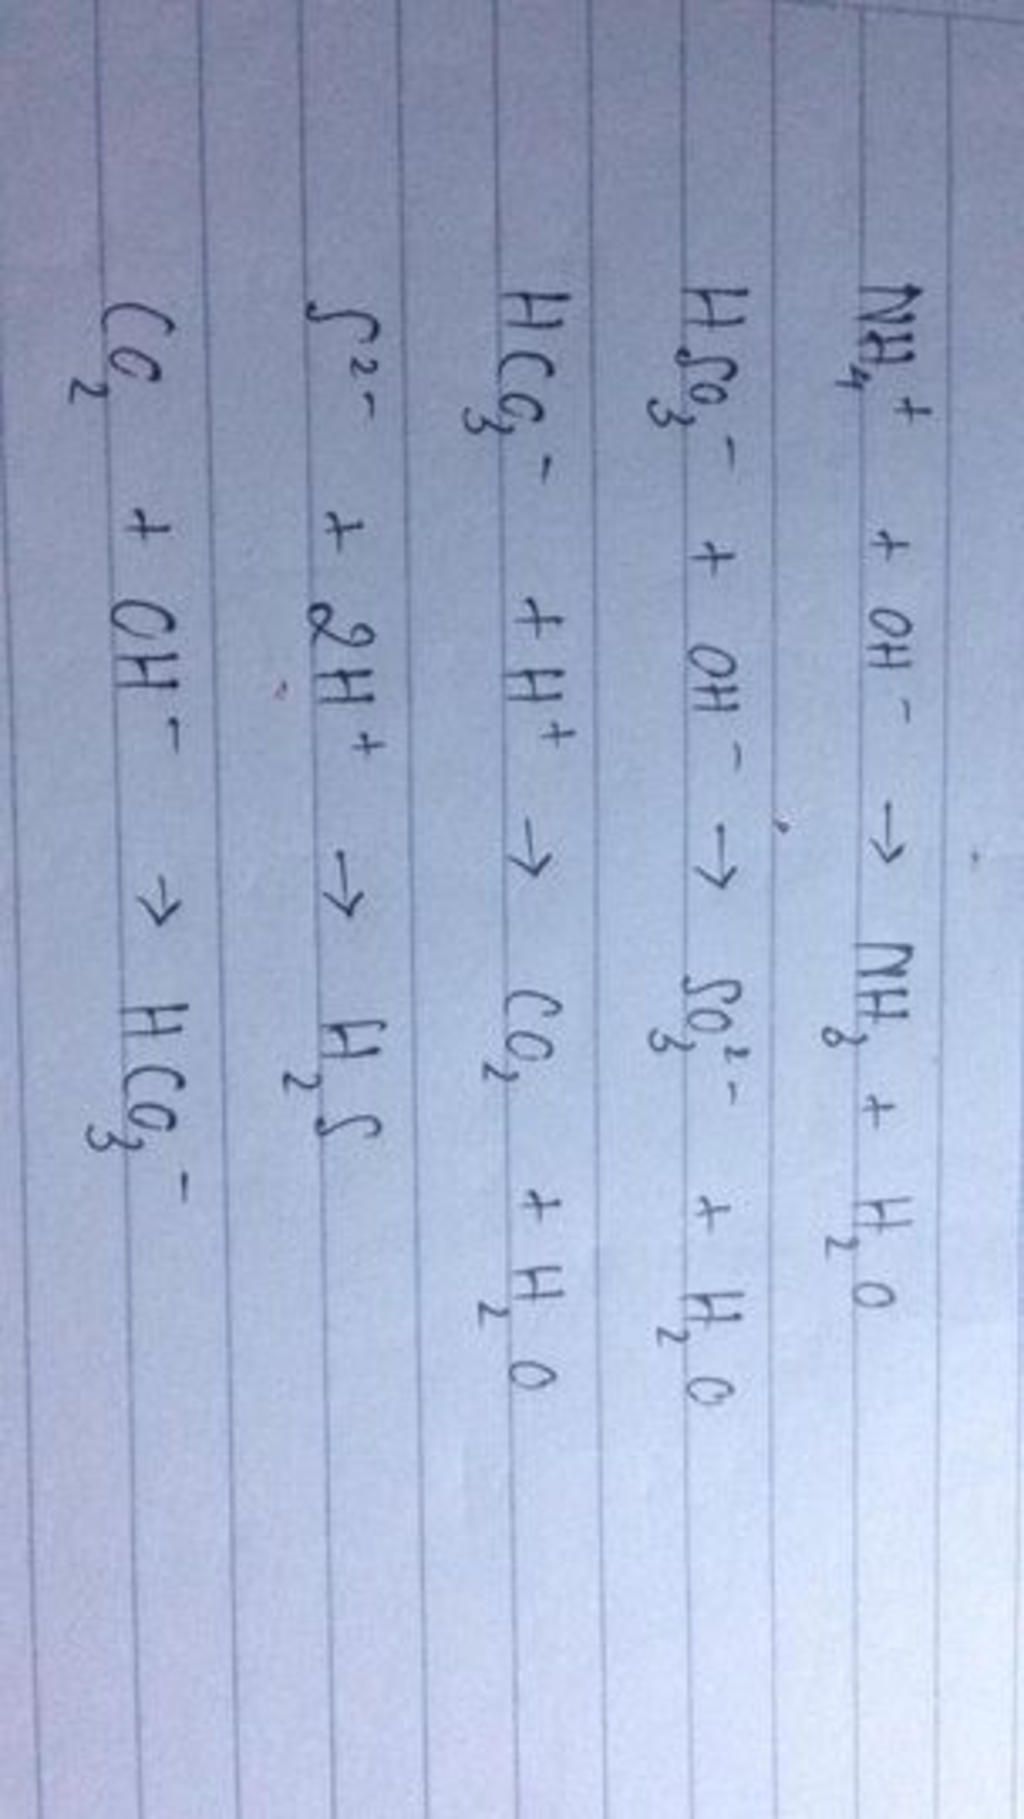 NH₄⁺ + OH⁻ → NH₃ + H₂O
HSO₃⁻ + OH⁻ → SO₃²⁻ + H₂O
HCO₃⁻ + H⁺ → CO₂ + H₂O
S²⁻ + 2H⁺ → H₂S
CO₂ + OH⁻ → HCO₃⁻